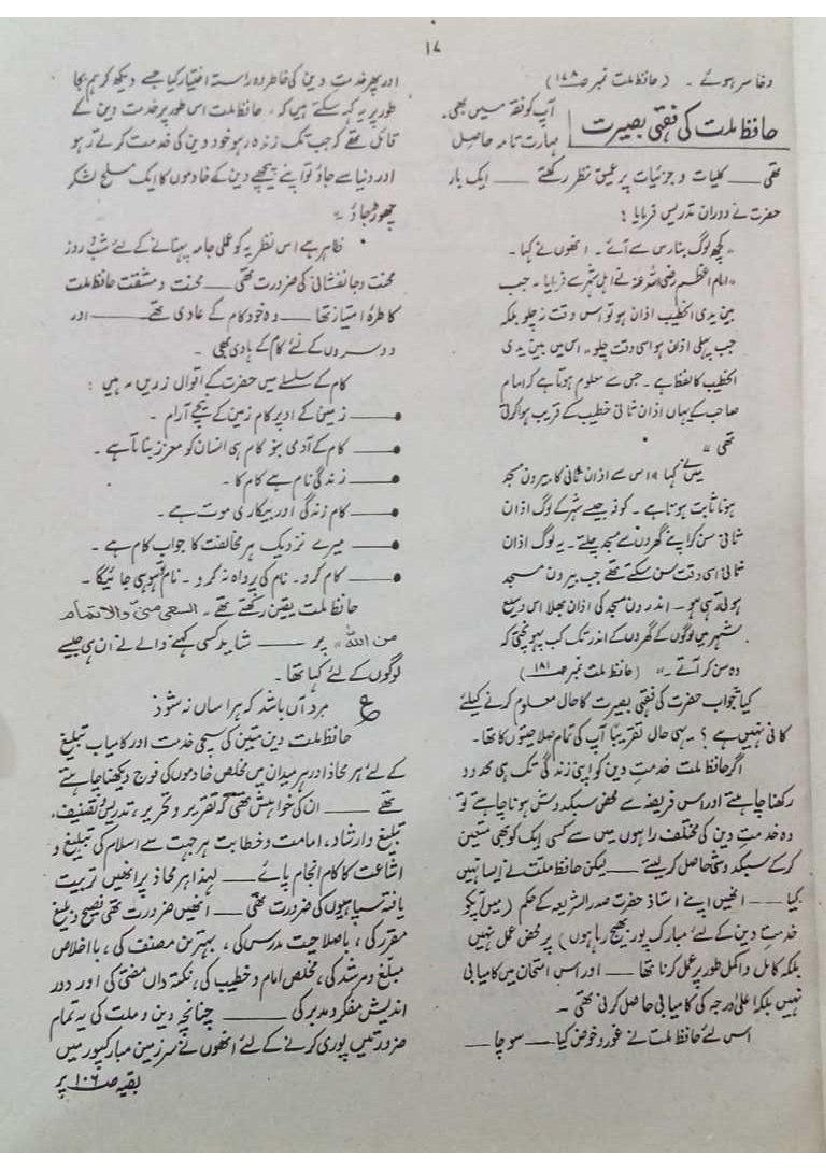 ۱۷
وفا سر ہوئے ۔ (حافظ ملت نمبر ص ۱۷۸)
حافظ ملت کی فقہی بصیرت
آپ کو فقہ میں بھی
مہارت تامہ حاصل
تھی ــــ کلیات و جزئیات پر عمیق نظر رکھتے ــــ ایک بار
حضرت نے دوران تدریس فرمایا :
" کچھ لوگ بنارس سے آئے ۔ انھوں نے کہا ۔
" امام اعظم رضی اللہ عنہ نے اہل شہر سے فرمایا ۔ جب
بین یدی الخطیب اذان ہو تو اس وقت نہ چلو بلکہ
جب پہلی اذان ہو اسی وقت چلو " اس میں بین یدی
الخطیب کا لفظ ہے ۔ جس سے معلوم ہوتا ہے کہ امام
صاحب کے یہاں اذان ثانی خطیب کے قریب ہوا کرتی
تھی "
میں نے کہا " اس سے اذان ثانی کا بیرون مسجد
ہونا ثابت ہوتا ہے ۔ کوفہ جیسے شہر کے لوگ اذان
ثانی سن کر اپنے گھروں سے مسجد چلتے ۔ یہ لوگ اذان
ثانی اسی وقت سن سکتے تھے جب بیرون مسجد
ہوتی رہی ہو ۔ اندرون مسجد کی اذان بھلا اس وسیع
شہر میں لوگوں کے گھروں کے اندر تک کب پہونچتی کہ
وہ سن کر آتے ۔ " (حافظ ملت نمبر ص ۱۸۱)
کیا یہ جواب حضرت کی فقہی بصیرت کا حال معلوم کرنے کیلئے
کافی نہیں ہے ؟ ۔ یہی حال تقریباً آپ کی تمام صلاحیتوں کا تھا ۔
اگر حافظ ملت خدمت دین کو اپنی زندگی تک ہی محدود
رکھنا چاہتے اور اس فریضہ سے محض سبکدوش ہونا چاہتے تو
وہ خدمت دین کی مختلف راہوں میں سے کسی ایک کو بھی متعین
کر کے سبکدوشی حاصل کر لیتے ــــ لیکن حافظ ملت نے ایسا نہیں
کیا ــــ انھیں اپنے استاذ حضرت صدر الشریعہ کے حکم (میں آپکو
خدمت دین کے لئے مبارک پور بھیج رہا ہوں) پر محض عمل نہیں
بلکہ کامل و اکمل طور پر عمل کرنا تھا ــــ اور اس امتحان میں کامیابی
نہیں بلکہ اعلیٰ درجہ کی کامیابی حاصل کرنی تھی ۔
اس لئے حافظ ملت نے غور و خوض کیا ــــ سوچا ــــ
اور پھر خدمت دین کی خاطر وہ راستہ اختیار کیا جسے دیکھ کر ہم بجا
طور پر یہ کہہ سکتے ہیں کہ ، حافظ ملت اس طور پر خدمت دین کے
قائل تھے کہ جب تک زندہ رہو خود دین کی خدمت کرتے رہو
اور دنیا سے جاؤ تو اپنے پیچھے دین کے خادموں کا ایک مسلح لشکر
چھوڑ جاؤ "
ظاہر ہے اس نظریہ کو عملی جامہ پہنانے کے لئے شب و روز
محنت و جانفشانی کی ضرورت تھی ــــ محنت و مشقت حافظ ملت
کا طرۂ امتیاز تھا ــــ وہ خود کام کے عادی تھے ــــ اور
دوسروں کے لئے کام کے ہادی بھی ۔
کام کے سلسلے میں حضرت کے اقوال زریں یہ ہیں :
● ــــ زمین کے اوپر کام زمین کے نیچے آرام ۔
● ــــ کام کے آدمی بنو کام ہی انسان کو معزز بناتا ہے ۔
● ــــ زندگی نام ہے کام کا ۔
● ــــ کام زندگی اور بیکاری موت ہے ۔
● ــــ میرے نزدیک ہر مخالفت کا جواب کام ہے ۔
● ــــ کام کرو ۔ نام کی پرواہ نہ کرو ۔ نام ہو ہی جائیگا ۔
حافظ ملت یقین رکھتے تھے ۔ السعی منی والاتمام
من اللہ " پر ــــ شاید کسی کہنے والے نے ان ہی جیسے
لوگوں کے لئے کہا تھا ۔
ع مرد آں باشد کہ ہراساں نہ شود
حافظ ملت دین متین کی سچی خدمت اور کامیاب تبلیغ
کے لئے ہر محاذ اور ہر میدان میں مخلص خادموں کی فوج دیکھنا چاہتے
تھے ــــ ان کی خواہش تھی کہ تقریر و تحریر ، تدریس و تصنیف ،
تبلیغ و ارشاد ، امامت و خطابت ہر جہت سے اسلام کی تبلیغ و
اشاعت کا کام انجام پائے ــــ لہٰذا ہر محاذ پر انھیں تربیت
یافتہ سپاہیوں کی ضرورت تھی ــــ انھیں ضرورت تھی فصیح و بلیغ
مقرر کی ، باصلاحیت مدرس کی ، بہترین مصنف کی ، با اخلاص
مبلغ و مرشد کی ، مخلص امام و خطیب کی ، نکتہ داں مفتی کی اور دور
اندیش مفکر و مدبر کی ــــ چنانچہ دین و ملت کی یہ تمام
ضرورتیں پوری کرنے کے لئے انھوں نے سرزمین مبارکپور میں
بقیہ ص ۱۰۶ پر